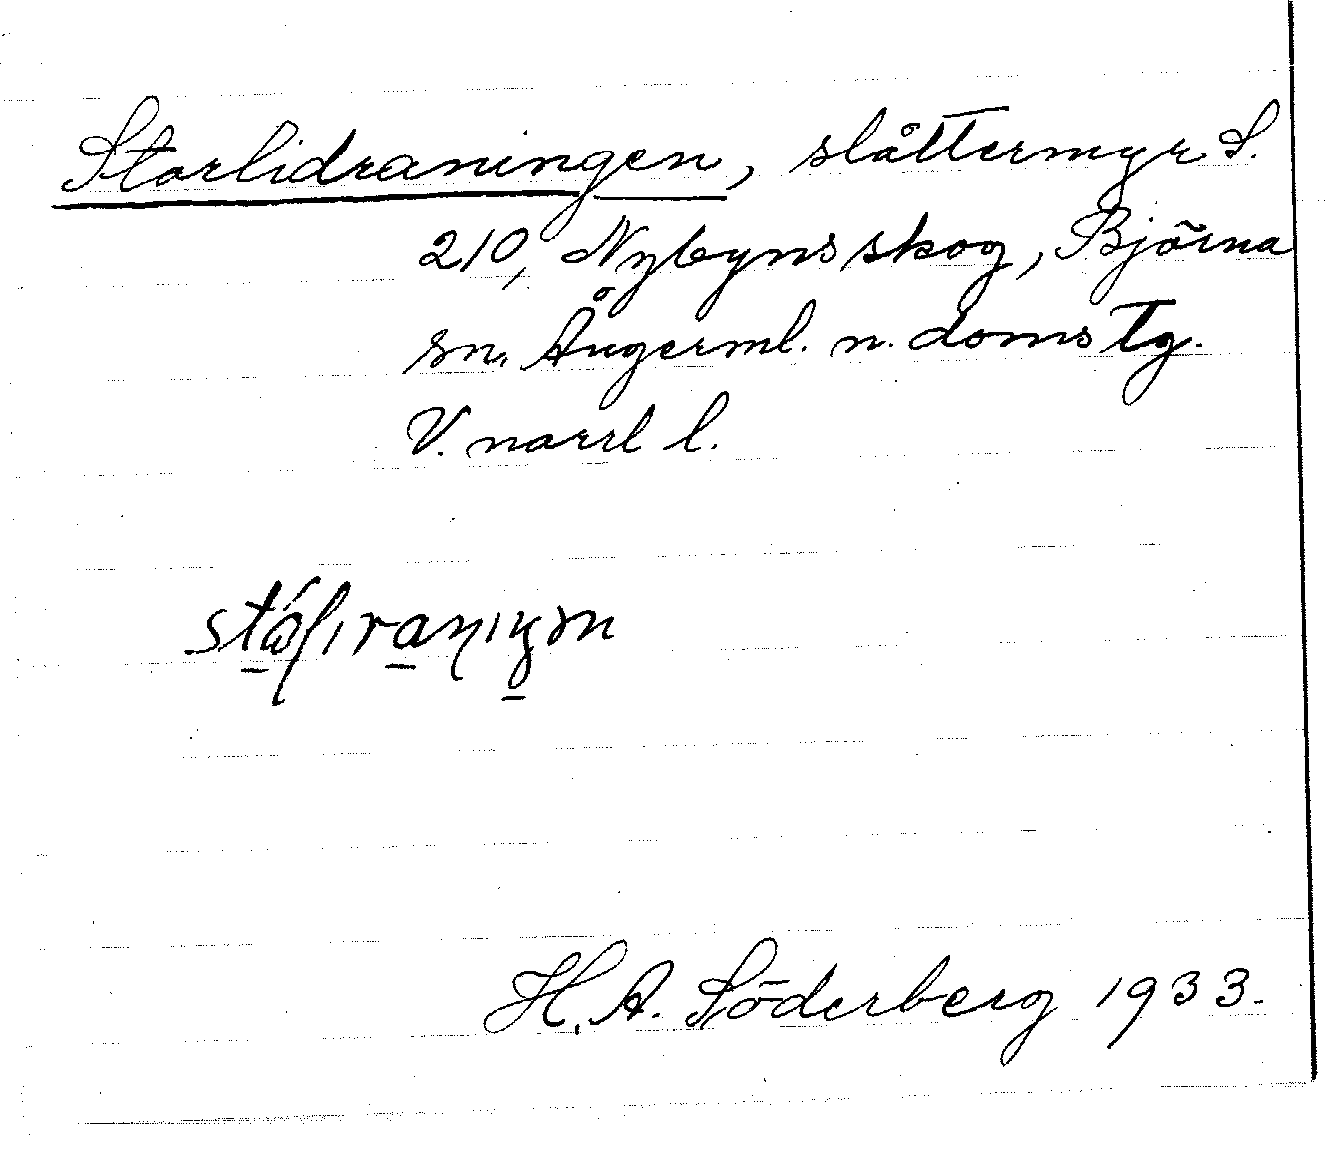 Storlidraningen, slåttermyr S.
210, Nybyns skog, Björna
sn. Ångerml. n. doms Tg.
V. norrl l.
H. A. Söderberg 1933.